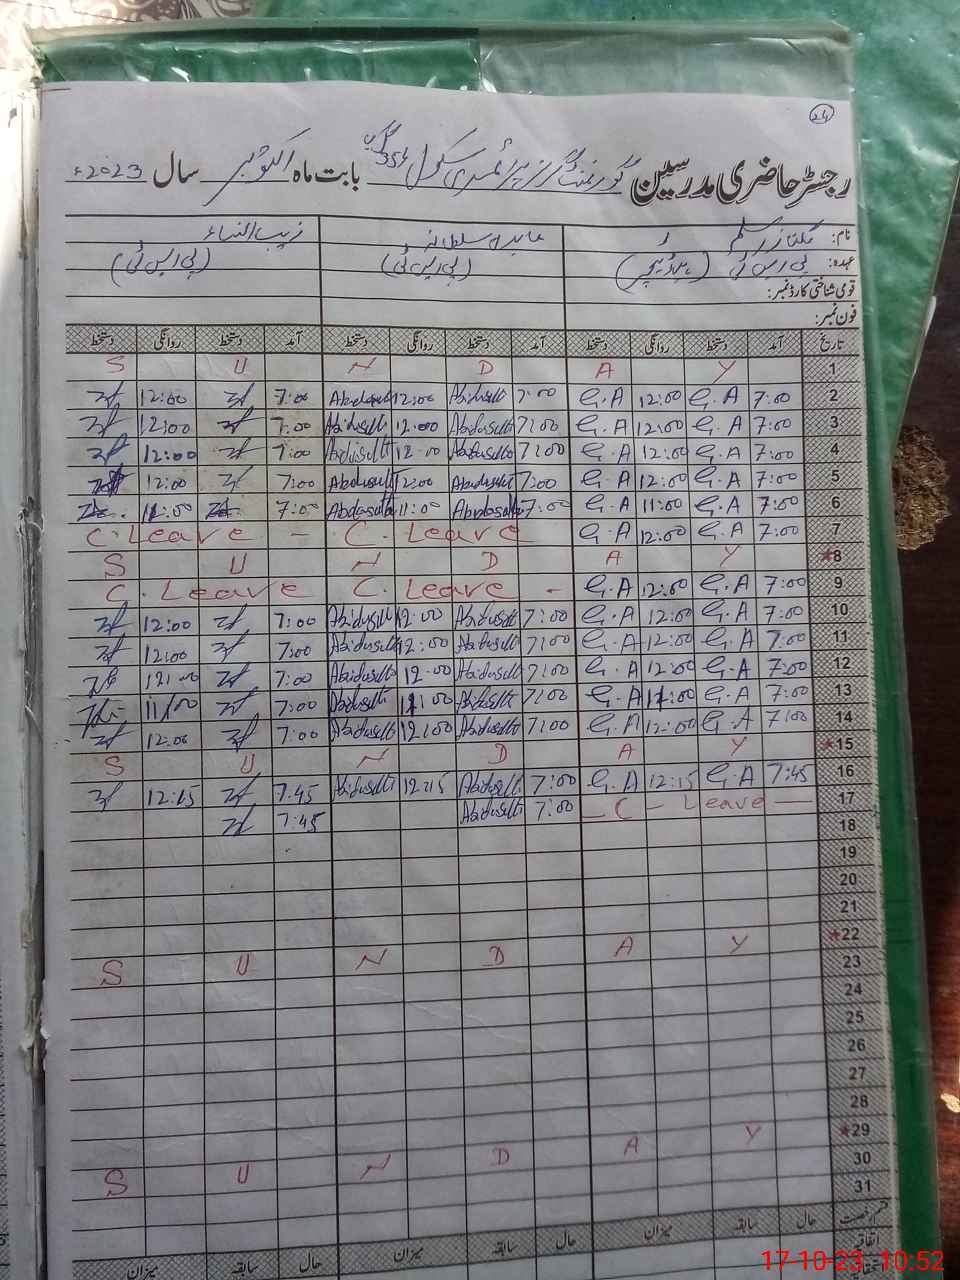 24
رجسٹر حاضری مدرسین گورنمنٹ گرلز پرائمری سکول 354 گ ب بابت ماہ اکتوبر سال 2023ء
نام: سلم عابدہ سلطانہ زیب النساء
عہدہ: پی ایس ٹی (ہیڈ ٹیچر) (پی ایس ٹی) (پی ایس ٹی)
قومی شناختی کارڈ نمبر:
فون نمبر:
تاریخ آمد دستخط روانگی دستخط آمد دستخط روانگی دستخط آمد دستخط روانگی دستخط
1 S U N D A Y
2 7:00 G.A 12:00 G.A 7:00 12:00 7:00 12:00
3 7:00 G.A 12:00 G.A 7:00 12:00 7:00 12:00
4 7:00 G.A 12:00 G.A 7:00 12:00 7:00 12:00
5 7:00 G.A 12:00 G.A 7:00 12:00 7:00 12:00
6 7:00 G.A 11:00 G.A 7:00 11:00 7:00 11:00
7 7:00 G.A 12:00 G.A C. Leave C. Leave -
*8 S U N D A Y
9 7:00 G.A 12:00 G.A C. Leave - C. Leave
10 7:00 G.A 12:00 G.A 7:00 12:00 7:00 12:00
11 7:00 G.A 12:00 G.A 7:00 12:00 7:00 12:00
12 7:00 G.A 12:00 G.A 7:00 12:00 7:00 12:00
13 7:00 G.A 11:00 G.A 7:00 11:00 7:00 11:00
14 7:00 G.A 12:00 G.A 7:00 12:00 7:00 12:00
*15 S U N D A Y
16 7:45 G.A 12:15 G.A 7:00 12:15 7:45 12:15
17 - C - Leave - 7:00 7:45
18
19
20
21
*22 S U N D A Y
23
24
25
26
27
28
*29 S U N D A Y
30
31
قسم رخصت حال سابقہ میزان حال سابقہ میزان حال سابقہ میزان
اتفاقیہ
17-10-23 10:52